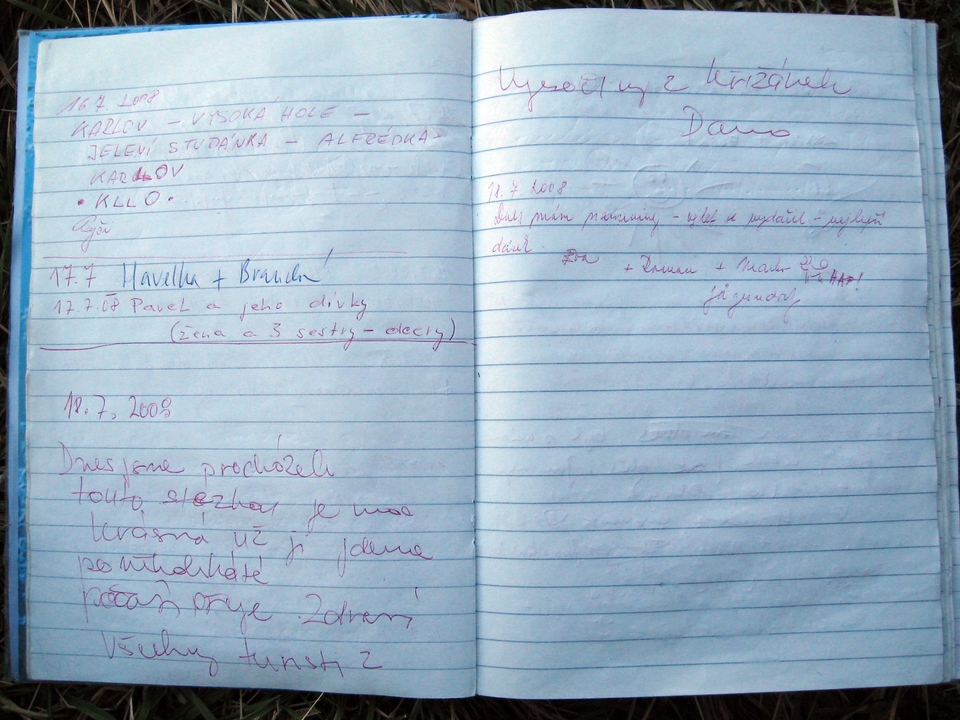 16.7. 2008
KARLOV – VYSOKÁ HOLE –
JELENÍ STUDÁNKA – ALFRÉDKA –
KARLOV
• KLLO •
17.7 Havelka + Branda
17.7.08 Pavel a jeho dívky
(žena a 3 sestry – dcery)
18.7, 2008
Dnes jsme procházeli
touto stezkou je moc
krásná už ji jdeme
po několikáté
počasí přeje Zdraví
všechny turisti z
Vysočiny z Křižánek
Dana
18.7 2008
Dnes mám narozeniny – výlet se vydařil – nejlepší
dárek
+ Roman +